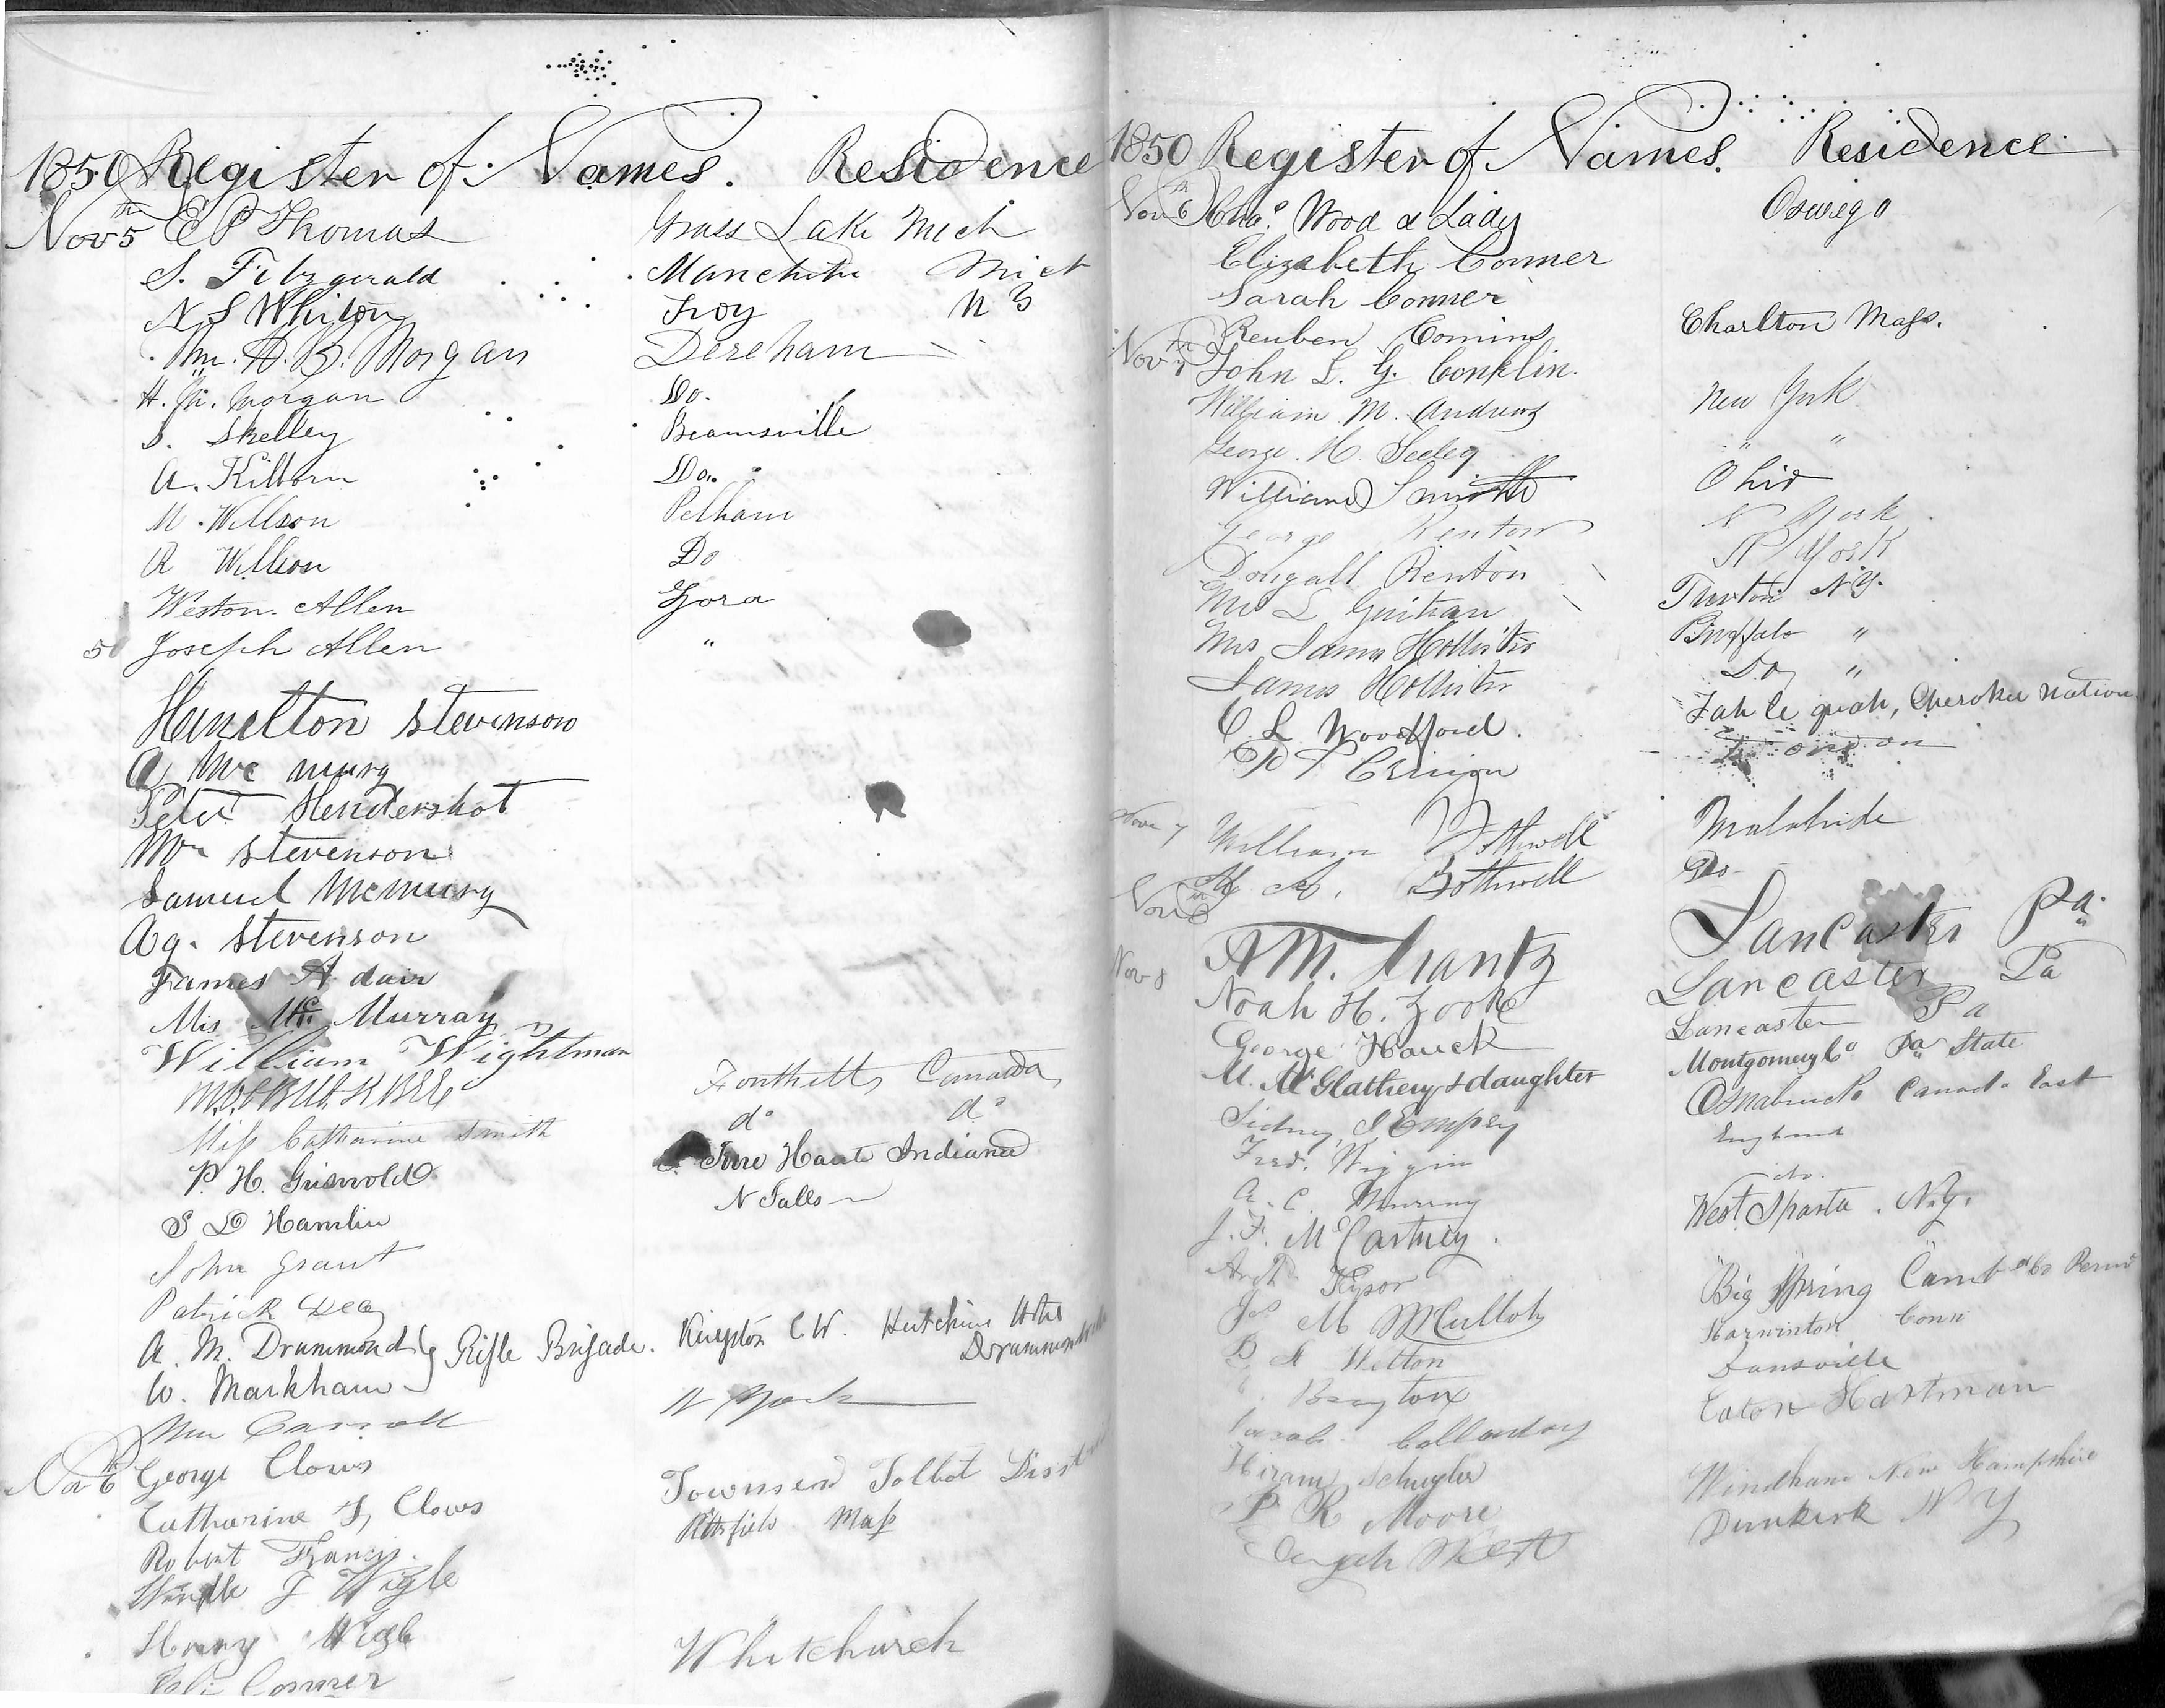 1850 Register of Names. Residence
Nov 5th E P Thomas Grass Lake Mich
S. Fitzgerald Mich
N S Whiton Troy
B. Morgan Dereham
H. M. Morgan Do.
S. Skelley Beamsville
A. Kilborn Do.
M. Willson Pelham
R Willson Do
Weston Allen Zora
Joseph Allen "
Stevenson
A
Peter Hendershot
Wm Stevenson
Samuel McMurry
Ag. Stevenson
James Adair
Mis Mc Murray
William Wightman
Canada
Miss Catharine Smith do do
P. H. Griswold Terre Haute Indiana
S D Hamlin N Falls
John Grant
Patrick Dea
A. M. Drummond } Rifle Brigade. Kingston C.W.
W. Markham
Wm Carroll N York
Nov 6th George Clows
Catharine Clows Townsend Talbot Dist
Robert Francis Pittsfield Mass
J Wigle
Henry Wigle
Conner Whitchurch
1850 Register of Names. Residence
Nov 6th Chas. Wood & Lady Oswego
Elizabeth Conner
Sarah Conner
Reuben Comins Charlton Mass.
Nov 7th John L. G. Conklin.
William M. Andrews New York
George H. Seeley " "
William Smith Ohio
George Renton N York
Dougall Renton N York
L N.Y.
Mrs James Hollister Buffalo "
James Hollister Do "
C. L. Woodford. Tah le quah, Cherokee Nation
London
Nov 7 William Bothwell Malahide
Bothwell Do
Nov 8th
A M. Frantz Lancaster Pa.
Nov 8 Noah H. Zook Lancaster Pa
George Hauck Lancaster Pa
M. McGlathery & daughter Montgomery Co Pa State
Sidney Empey Osnabruck Canada East
Fred. Wiggin England
A. C. Murray do.
J. F. McCartney. West Sparta. N.Y.
" "
M McCulloh Big Spring Penn
Welton Harwinton Conn
Brayton Dansville
Sarah Eaton Hartman
Hiram Schuyler
P R Moore Windham New Hampshire
West Dunkirk N Y